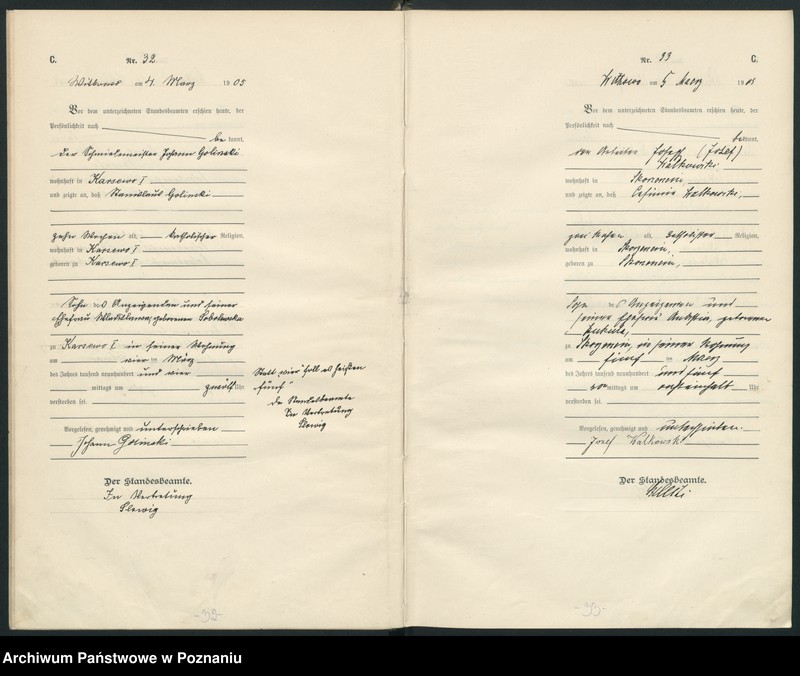 C.
Nr. 32
Witkowo am 4. März 1905
Vor dem unterzeichneten Standesbeamten erschien heute, der
Persönlichkeit nach
be kannt,
der Schmiedemeister Johann Golinski
wohnhaft in Karsewo I
und zeigte an, daß Stanislaus Golinski
zehn Wochen alt, katholischer Religion,
wohnhaft in Karsewo I
geboren zu Karsewo I
Sohn des Anzeigenden und seiner
Ehefrau Wladislawa, geborenen Sobolewska
zu Karsewo I in seiner Wohnung
am vier ten März
des Jahres tausend neunhundert und vier
mittags um zwölf Uhr
verstorben sei.
Vorgelesen, genehmigt und unterschrieben
Johann Goliński
Der Standesbeamte.
In Vertretung
Statt "vier" soll es heißen
"fünf"
Der Standesbeamte
In Vertretung
-32-
Nr. 33
C.
Witkowo am 5 März 1905
Vor dem unterzeichneten Standesbeamten erschien heute, der
Persönlichkeit nach
bekannt,
der Arbeiter Josef (Józef)
Walkowski
wohnhaft in
und zeigte an, daß Casimir Walkowski,
alt, katholischer Religion,
wohnhaft in
geboren zu
Sohn des Anzeigenden und
seiner Ehefrau geborenen
zu in seiner Wohnung
am fünf ten März
des Jahres tausend neunhundert und fünf
vor mittags um Uhr
verstorben sei.
Vorgelesen, genehmigt und unterschrieben.
Jozef Walkowski
Der Standesbeamte.
-33-
Archiwum Państwowe w Poznaniu